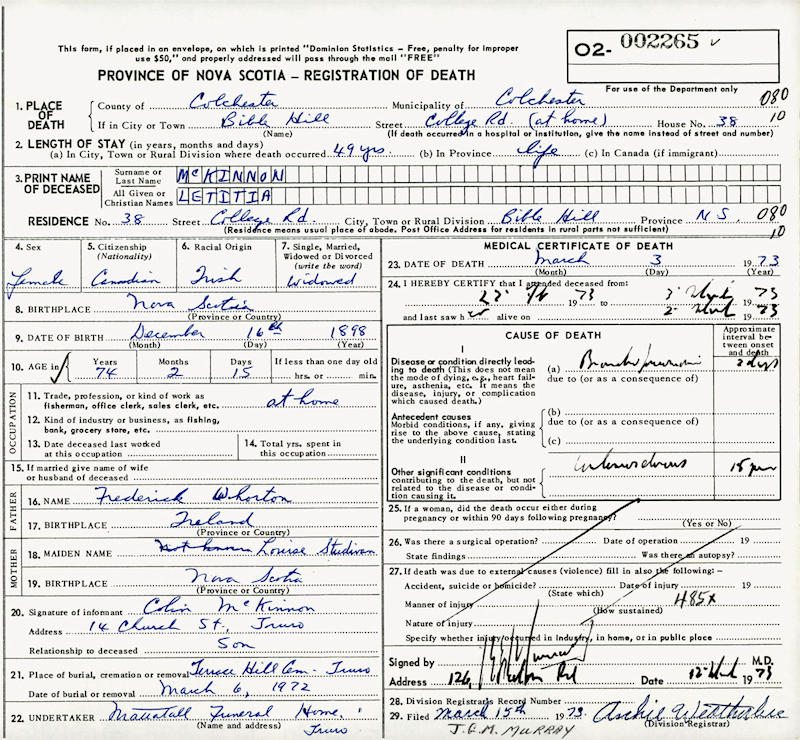 This form, if placed in an envelope, on which is printed "Dominion Statistics – Free, penalty for improper
use $50," and properly addressed will pass through the mail "FREE"
O2- 002265 v
PROVINCE OF NOVA SCOTIA – REGISTRATION OF DEATH
For use of the Department only
1. PLACE OF DEATH County of Colchester Municipality of Colchester 080
If in City or Town Bible Hill Street College Rd. (at home) House No. 38 10
(Name) (If death occurred in a hospital or institution, give the name instead of street and number)
2. LENGTH OF STAY (in years, months and days)
(a) In City, Town or Rural Division where death occurred 49 yrs. (b) In Province life (c) In Canada (if immigrant)
3. PRINT NAME OF DECEASED Surname or Last Name McKINNON
All Given or Christian Names LETITIA
RESIDENCE No. 38 Street College Rd. City, Town or Rural Division Bible Hill Province N.S. 080
(Residence means usual place of abode. Post Office Address for residents in rural parts not sufficient) 10
4. Sex
Female
5. Citizenship
(Nationality)
Canadian
6. Racial Origin
Irish
7. Single, Married,
Widowed or Divorced
(write the word)
Widowed
8. BIRTHPLACE Nova Scotia
(Province or Country)
9. DATE OF BIRTH December 16th 1898
(Month) (Day) (Year)
10. AGE in Years Months Days If less than one day old
74 2 15 hrs. or min.
OCCUPATION
11. Trade, profession, or kind of work as
fisherman, office clerk, sales clerk, etc. at home
12. Kind of industry or business, as fishing,
bank, grocery store, etc.
13. Date deceased last worked
at this occupation
14. Total yrs. spent in
this occupation
15. If married give name of wife
or husband of deceased
FATHER
16. NAME Frederick Whorton
17. BIRTHPLACE Ireland
(Province or Country)
MOTHER
18. MAIDEN NAME Louise
19. BIRTHPLACE Nova Scotia
(Province or Country)
20. Signature of informant Colin McKinnon
Address 14 Church St., Truro
Relationship to deceased Son
21. Place of burial, cremation or removal Hill Cem - Truro
Date of burial or removal March 6, 1972
22. UNDERTAKER Mattatall Funeral Home,
(Name and address) Truro
MEDICAL CERTIFICATE OF DEATH
23. DATE OF DEATH March 3 1973
(Month) (Day) (Year)
24. I HEREBY CERTIFY that I attended deceased from:
1973 to 3 1973
and last saw h alive on 2 1973
CAUSE OF DEATH
Approximate
interval be-
tween onset
and death
I
Disease or condition directly lead-
ing to death (This does not mean
the mode of dying, e.g., heart fail-
ure, asthenia, etc. It means the
disease, injury, or complication
which caused death.)
(a) 2 days
due to (or as a consequence of)
Antecedent causes
Morbid conditions, if any, giving
rise to the above cause, stating
the underlying condition last.
(b)
due to (or as a consequence of)
(c)
II
Other significant conditions
contributing to the death, but not
related to the disease or condi-
tion causing it.
15
25. If a woman, did the death occur either during
pregnancy or within 90 days following pregnancy?
(Yes or No)
26. Was there a surgical operation? Date of operation 19
State findings Was there an autopsy?
27. If death was due to external causes (violence) fill in also the following:–
Accident, suicide or homicide? Date of injury 19
(State which)
Manner of injury 485x
(How sustained)
Nature of injury
Specify whether injury occurred in industry, in home, or in public place
Signed by M.D.
Address 126, Rd Date 12 1973
28. Division Registrar's Record Number
29. Filed March 15th 1973. Archie
(Division Registrar)
J.G.M. MURRAY